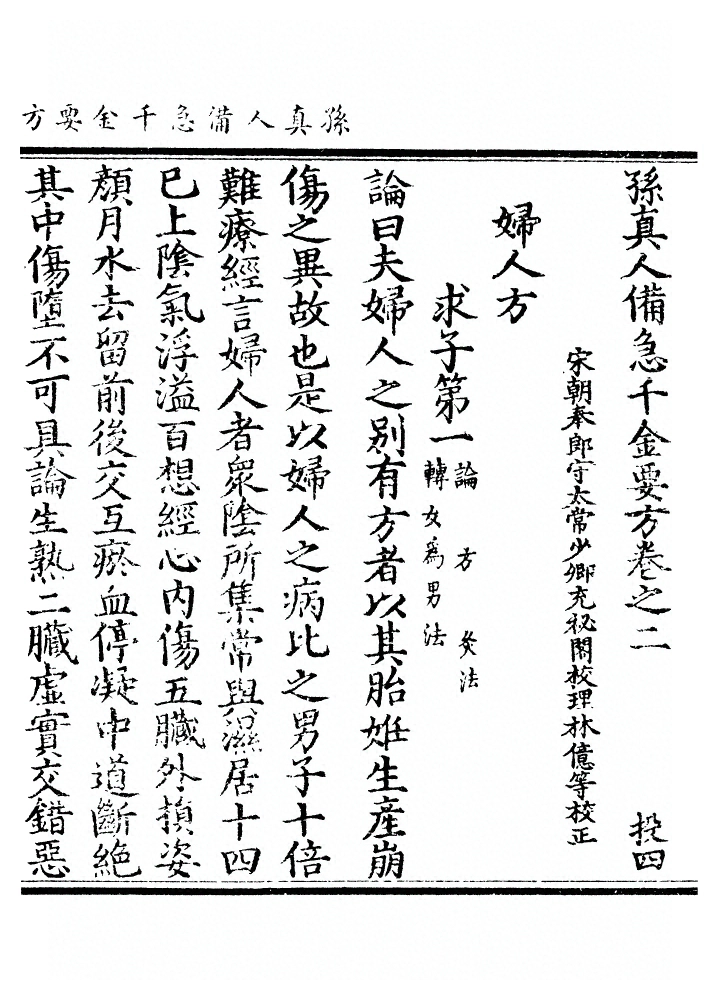 孫真人備急千金要方
孫真人備急千金要方卷之二　投四
宋朝奉郎守太常少卿充祕閣校理林億等校正
婦人方
求子第一　論　方　灸法
轉女爲男法
論曰夫婦人之別有方者以其胎姙生產崩
傷之異故也是以婦人之病比之男子十倍
難療經言婦人者衆陰所集常與濕居十四
已上陰氣浮溢百想經心內傷五臟外損姿
顏月水去留前後交互瘀血停凝中道斷絕
其中傷墮不可具論生熟二臟虛實交錯惡